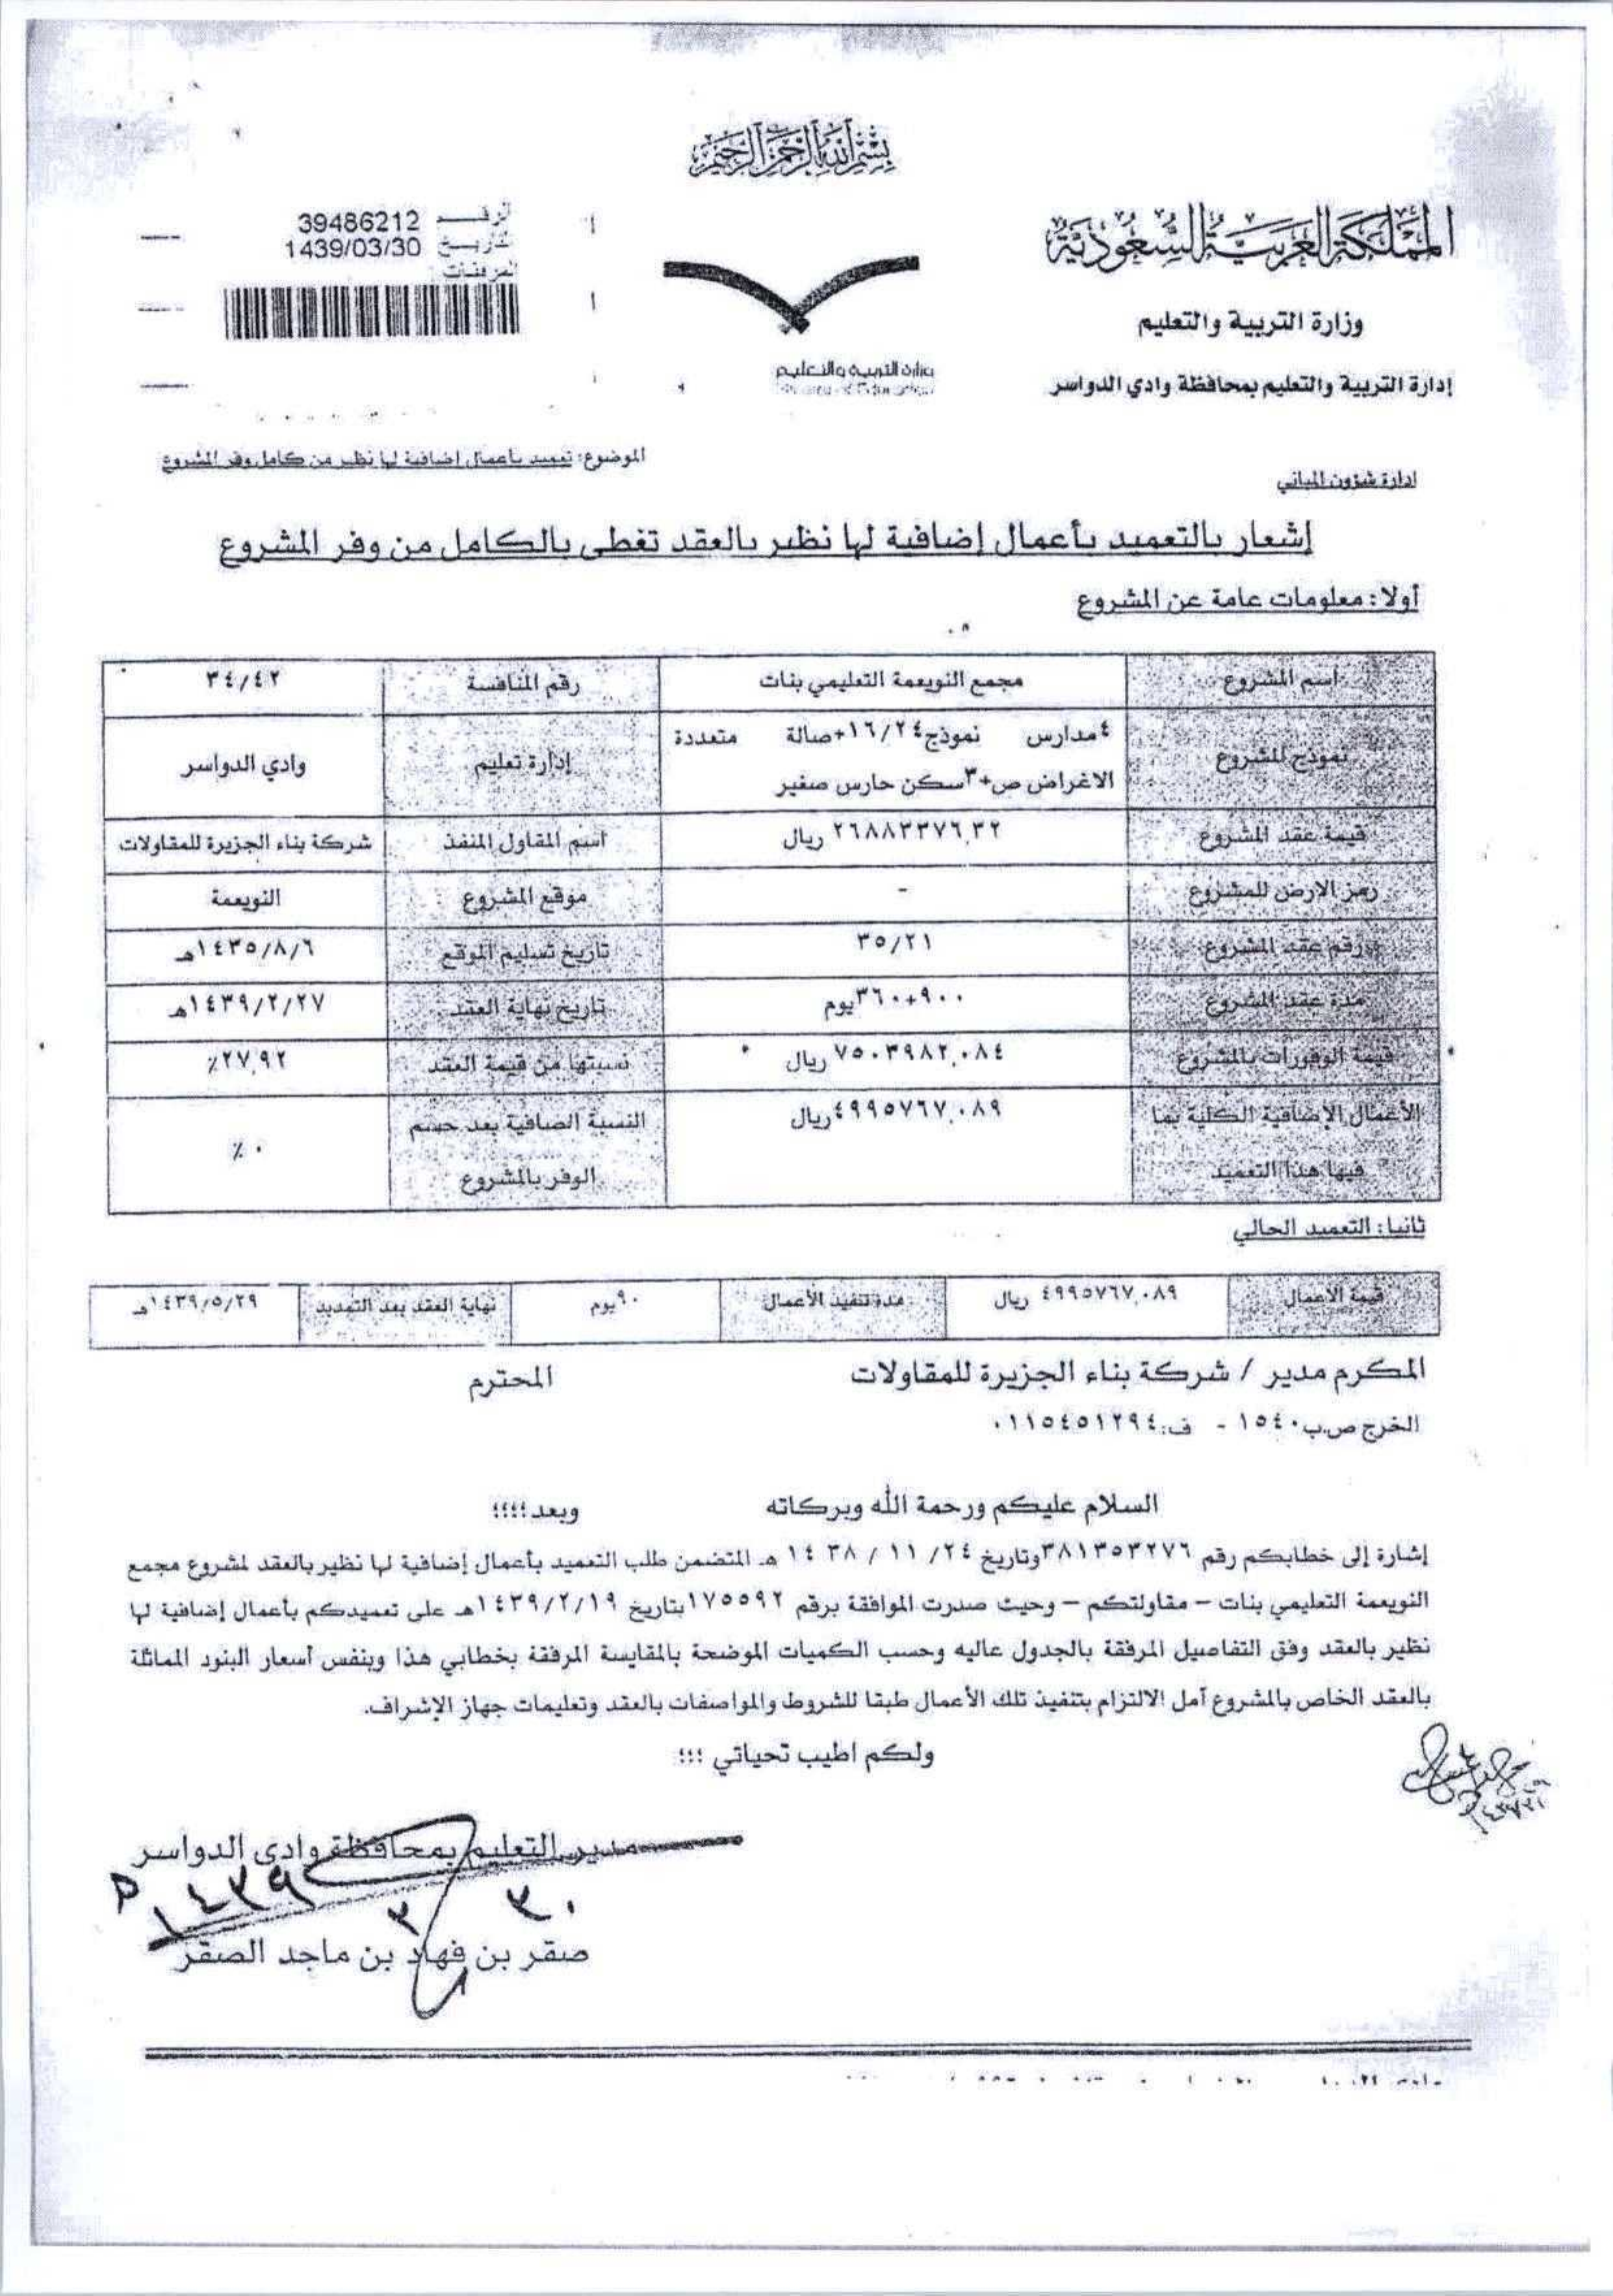 بسم الله الرحمن الرحيم
المملكة العربية السعودية
وزارة التربية والتعليم
إدارة التربية والتعليم بمحافظة وادي الدواسر
وزارة التربية والتعليم
الرقم 39486212
التاريخ 1439/03/30
المرفقات
الموضوع: تعميد بأعمال إضافية لها نظير من كامل وفر المشروع
إدارة شؤون المباني
إشعار بالتعميد بأعمال إضافية لها نظير بالعقد تغطى بالكامل من وفر المشروع
أولا: معلومات عامة عن المشروع
اسم المشروع مجمع النويعمة التعليمي بنات رقم المنافسة ٣٤/٤٢
نموذج المشروع ٤مدارس نموذج١٦/٢٤+صالة متعددة الاغراض ص+٣سكن حارس صغير إدارة تعليم وادي الدواسر
قيمة عقد المشروع ٢٦٨٨٣٣٧٦,٣٢ ريال اسم المقاول المنفذ شركة بناء الجزيرة للمقاولات
رمز الارض للمشروع - موقع المشروع النويعمة
رقم عقد المشروع ٣٥/٢١ تاريخ تسليم الموقع ١٤٣٥/٨/٦هـ
مدة عقد المشروع ٩٠٠+٣٦٠يوم تاريخ نهاية العقد ١٤٣٩/٢/٢٧هـ
قيمة الوفورات بالمشروع ٧٥٠٣٩٨٢,٠٨٤ ريال نسبتها من قيمة العقد ٢٧,٩٢٪
الأعمال الإضافية الكلية بما فيها هذا التعميد ٤٩٩٥٧٦٧,٠٨٩ريال النسبة الصافية بعد حسم الوفر بالمشروع ٠ ٪
ثانيا: التعميد الحالي
قيمة الاعمال ٤٩٩٥٧٦٧,٠٨٩ ريال مدة تنفيذ الأعمال ٩٠يوم نهاية العقد بعد التمديد ١٤٣٩/٥/٢٩هـ
المكرم مدير / شركة بناء الجزيرة للمقاولات المحترم
الخرج ص.ب١٥٤٠ - ف:٠١١٥٤٥١٢٩٤
السلام عليكم ورحمة الله وبركاته وبعد؛؛؛؛
إشارة إلى خطابكم رقم ٣٨١٣٥٣٢٧٦وتاريخ ٢٤/ ١١ / ١٤٣٨ هـ المتضمن طلب التعميد بأعمال إضافية لها نظير بالعقد لمشروع مجمع
النويعمة التعليمي بنات – مقاولتكم – وحيث صدرت الموافقة برقم ١٧٥٥٩٢بتاريخ ١٤٣٩/٢/١٩هـ على تعميدكم بأعمال إضافية لها
نظير بالعقد وفق التفاصيل المرفقة بالجدول عاليه وحسب الكميات الموضحة بالمقايسة المرفقة بخطابي هذا وبنفس أسعار البنود المماثلة
بالعقد الخاص بالمشروع آمل الالتزام بتنفيذ تلك الأعمال طبقا للشروط والمواصفات بالعقد وتعليمات جهاز الإشراف.
ولكم اطيب تحياتي ؛؛؛
مدير التعليم بمحافظة وادي الدواسر
٣٠ / ٣ / ١٤٣٩ هـ
صقر بن فهاد بن ماجد الصقر